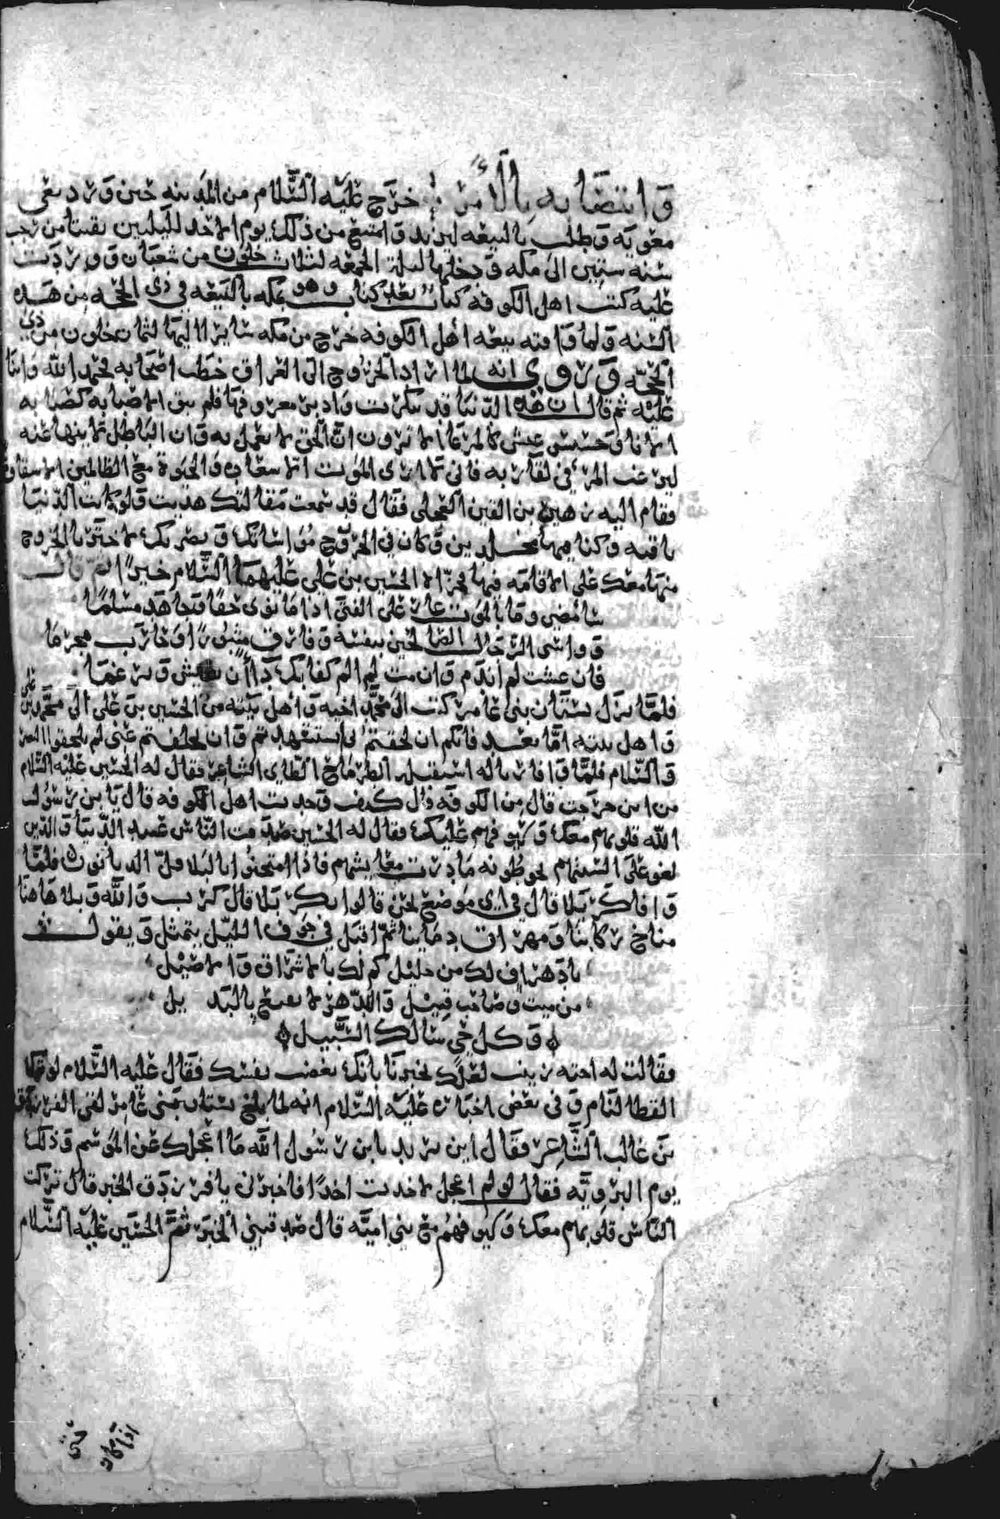 وانتصابه بالأمر خرج عليه السلام من المدينة حين ورد نعي
معوية وطلب بالبيعه ليزيد وامتنع من ذلك يوم الاحد لليلتين بقيتا من رجب
سنه ستين الى مكه ودخلها ليلة الجمعه لثلاث خلون من شعبان ووردت
عليه كتب اهل الكوفه كتاب بعد كتاب وهو بمكه بالبيعه في ذي الحجه من هذه
السنه ولما وافته بيعه اهل الكوفه خرج من مكه سايرا اليها لثمان خلون من ذي
الحجه وروي انه لما اراد الخروج الى العراق خطب اصحابه فحمد الله واثنا
عليه ثم قال ان هذه الدنيا قد تنكرت وادبر معروفها فلم يبق الا صبابه كصبابه
الانا وخسيس عيش كالمرعا الا ترون ان الحق لا يعمل به وان الباطل لا ينها عنه
ليرغب المرء في لقا ربه فاني لا ارى الموت الا سعاده والحيوة مع الظالمين الا شقاوه
فقام اليه زهير بن القين العجلي فقال قد سمعت مقالتك هديت ولو كانت الدنيا
باقيه وكنا فيها مخلدين وكان في الخروج مواساتك ونصرتك لاخترنا الخروج
منها معك على الاقامه فيها فجزاه الحسين بن علي عليهما السلام خيرا ثم قال
سامضي وما بالموت عار على الفتى اذا ما نوى حقا وجاهد مسلما
وواسى الرجال الصالحين بنفسه وفارق مثبورا وحارب مجرما
فان عشت لم اندم وان مت لم الم كفا بك ذا ان تعيش وترغما
فلما نزل بستان بني عامر كتب الى محمد اخيه واهل بيته من الحسين بن علي الى محمد بن علي
واهل بيته اما بعد فانكم ان لحقتم بي استشهدتم وان تخلفتم عني لم تلحقوا النصر
والسلام فلما وافا زباله استقبله الطرماح الطاي الشاعر فقال له الحسين عليه السلام
من اين خرجت قال من الكوفه قال كيف وجدت اهل الكوفه قال يا بن رسول
الله قلوبهم معك وسيوفهم عليك فقال له الحسين صدقت الناس عبيد الدنيا والدين
لغو على السنتهم يحوطونه ما درت معايشهم فاذا امتحنوا بالبلا قل الديانون فلما
وافا كربلا قال في اي موضع نحن قالوا بكربلا قال كرب والله وبلا هاهنا
مناخ ركابنا ومهراق دماينا ثم اقبل في جوف الليل يتمثل ويقول
يا دهر اف لك من خليل كم لك بالاشراق والاصيل
من ميت وصاحب قتيل والدهر لا يقنع بالبديل
وكل حي سالك السبيل
فقالت له اخته زينب لعلك تخبرنا بانك تغصب نفسك فقال عليه السلام لو ترك
القطا لنام وفي بعض اخباره عليه السلام انه لما بلغ بستان بني عامر لقي الفرزدق
بن غالب الشاعر فقال اين تريد يا بن رسول الله ما اعجلك عن الموسم وذلك
يوم الترويه فقال لو لم اعجل لاخذت اخذا فاخبرني يا فرزدق الخبر قال تركت
الناس قلوبهم معك وسيوفهم مع بني اميه قال صدقتني الخبر ثم الحسين عليه السلام
حتى
اذا كان